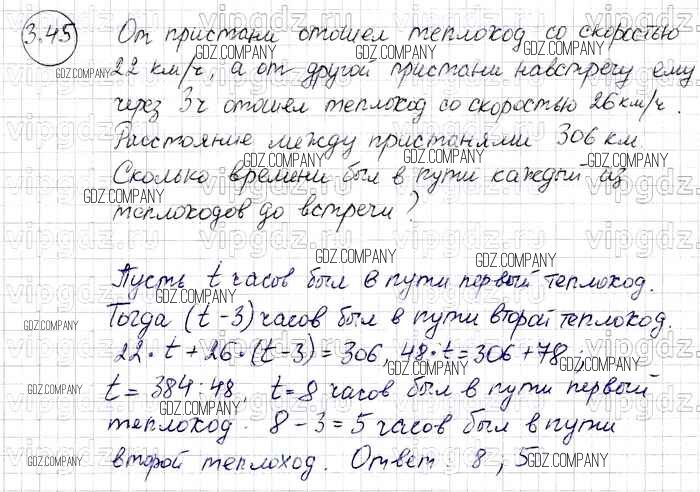 3.45 От пристани отошел теплоход со скоростью
22 км/ч, а от другой пристани навстречу ему
через 3ч отошел теплоход со скоростью 26 км/ч.
Расстояние между пристанями 306 км.
Сколько времени был в пути каждый из
теплоходов до встречи?
Пусть t часов был в пути первый теплоход.
Тогда (t-3) часов был в пути второй теплоход.
22·t+26·(t-3)=306, 48·t=306+78;
t=384:48, t=8 часов был в пути первый
теплоход. 8-3=5 часов был в пути
второй теплоход. Ответ: 8, 5
GDZ.COMPANY
vipgdz.ru